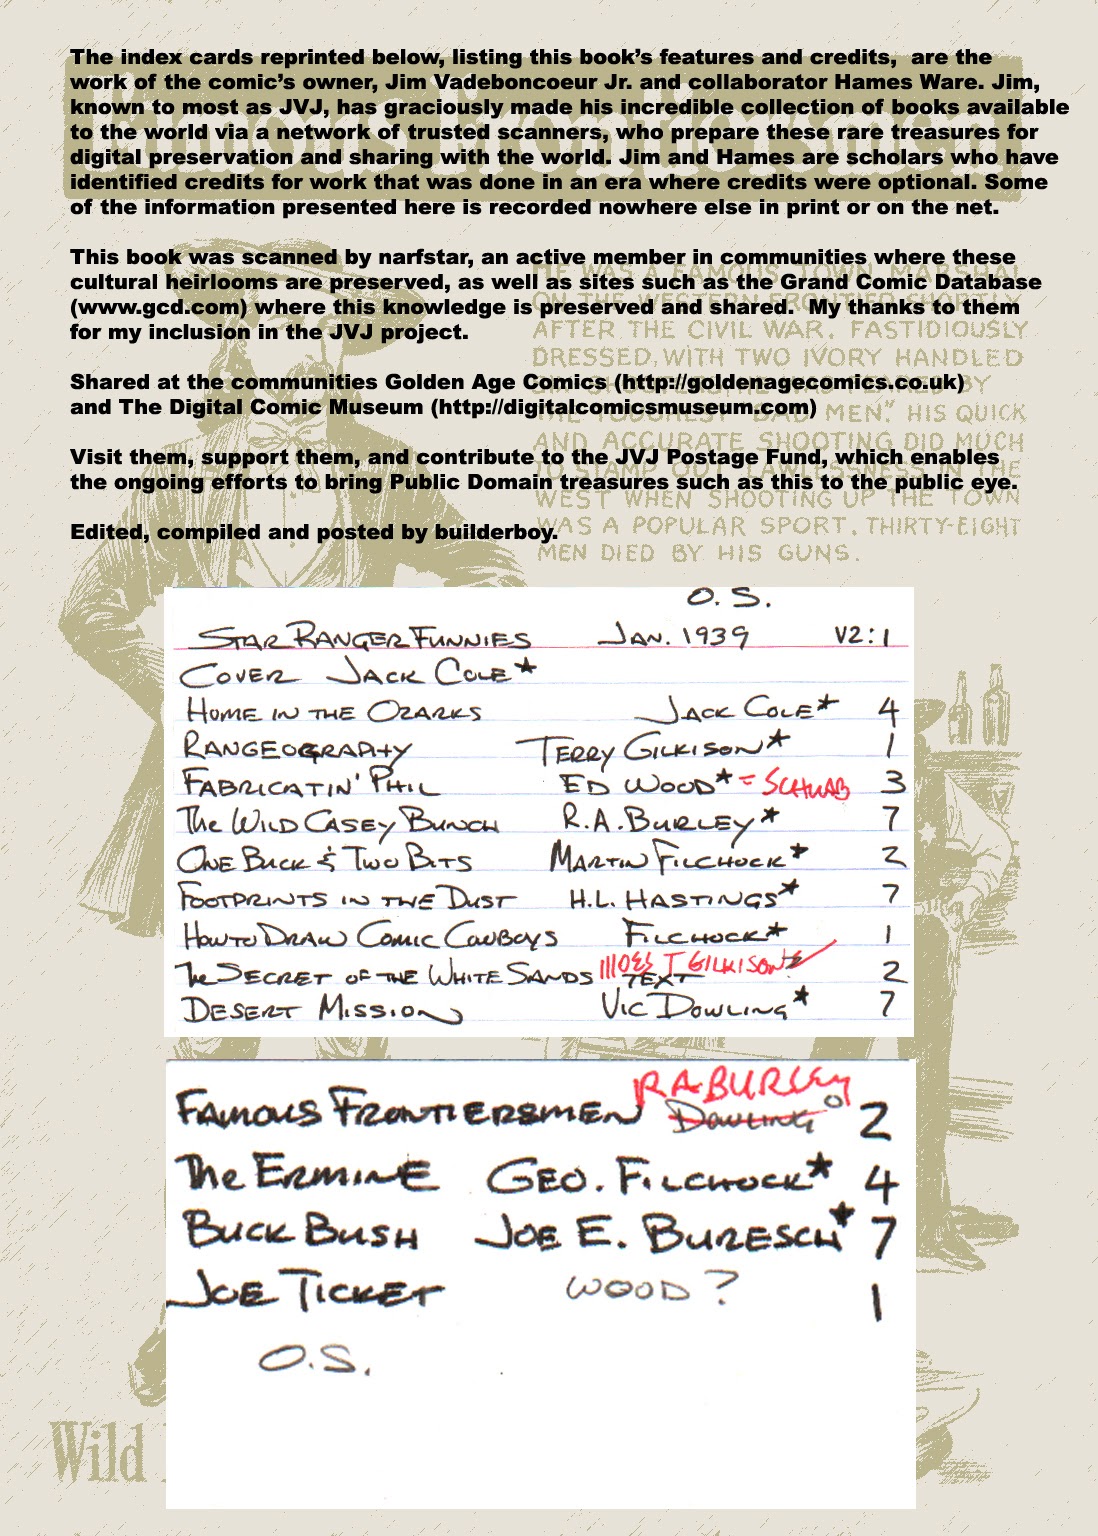 The index cards reprinted below, listing this book's features and credits, are the
work of the comic's owner, Jim Vadeboncoeur Jr. and collaborator Hames Ware. Jim,
known to most as JVJ, has graciously made his incredible collection of books available
to the world via a network of trusted scanners, who prepare these rare treasures for
digital preservation and sharing with the world. Jim and Hames are scholars who have
identified credits for work that was done in an era where credits were optional. Some
of the information presented here is recorded nowhere else in print or on the net.
This book was scanned by narfstar, an active member in communities where these
cultural heirlooms are preserved, as well as sites such as the Grand Comic Database
(www.gcd.com) where this knowledge is preserved and shared. My thanks to them
for my inclusion in the JVJ project.
Shared at the communities Golden Age Comics (http://goldenagecomics.co.uk)
and The Digital Comic Museum (http://digitalcomicsmuseum.com)
Visit them, support them, and contribute to the JVJ Postage Fund, which enables
the ongoing efforts to bring Public Domain treasures such as this to the public eye.
Edited, compiled and posted by builderboy.
Famous Frontiersmen
HE WAS A FAMOUS TOWN MARSHAL
ON THE WESTERN FRONTIER SHORTLY
AFTER THE CIVIL WAR. FASTIDIOUSLY
DRESSED, WITH TWO IVORY HANDLED
BY
THE TOUGHEST "BAD MEN." HIS QUICK
AND ACCURATE SHOOTING DID MUCH
TO STAMP OUT LAWLESSNESS IN THE
WEST WHEN SHOOTING UP THE TOWN
WAS A POPULAR SPORT. THIRTY-EIGHT
MEN DIED BY HIS GUNS.
O.S.
STAR RANGER FUNNIES JAN. 1939 V2:1
COVER JACK COLE★
HOME IN THE OZARKS JACK COLE★ 4
RANGEOGRAPHY TERRY GILKISON★ 1
FABRICATIN' PHIL ED WOOD★ = SCHWAB 3
The WILD CASEY BUNCH R.A. BURLEY★ 7
ONE BUCK & TWO BITS MARTIN FILCHOCK★ 2
FOOTPRINTS IN THE DUST H.L. HASTINGS★ 7
HOW TO DRAW COMIC COWBOYS FILCHOCK★ 1
The SECRET OF THE WHITE SANDS TEXT ILLOES T GILKISON 2
DESERT MISSION VIC DOWLING★ 7
R.A. BURLEY
FAMOUS FRONTIERSMEN DOWLING 2
The ERMINE GEO. FILCHOCK★ 4
BUCK BUSH JOE E. BURESCH★ 7
JOE TICKET WOOD? 1
O.S.
Wild